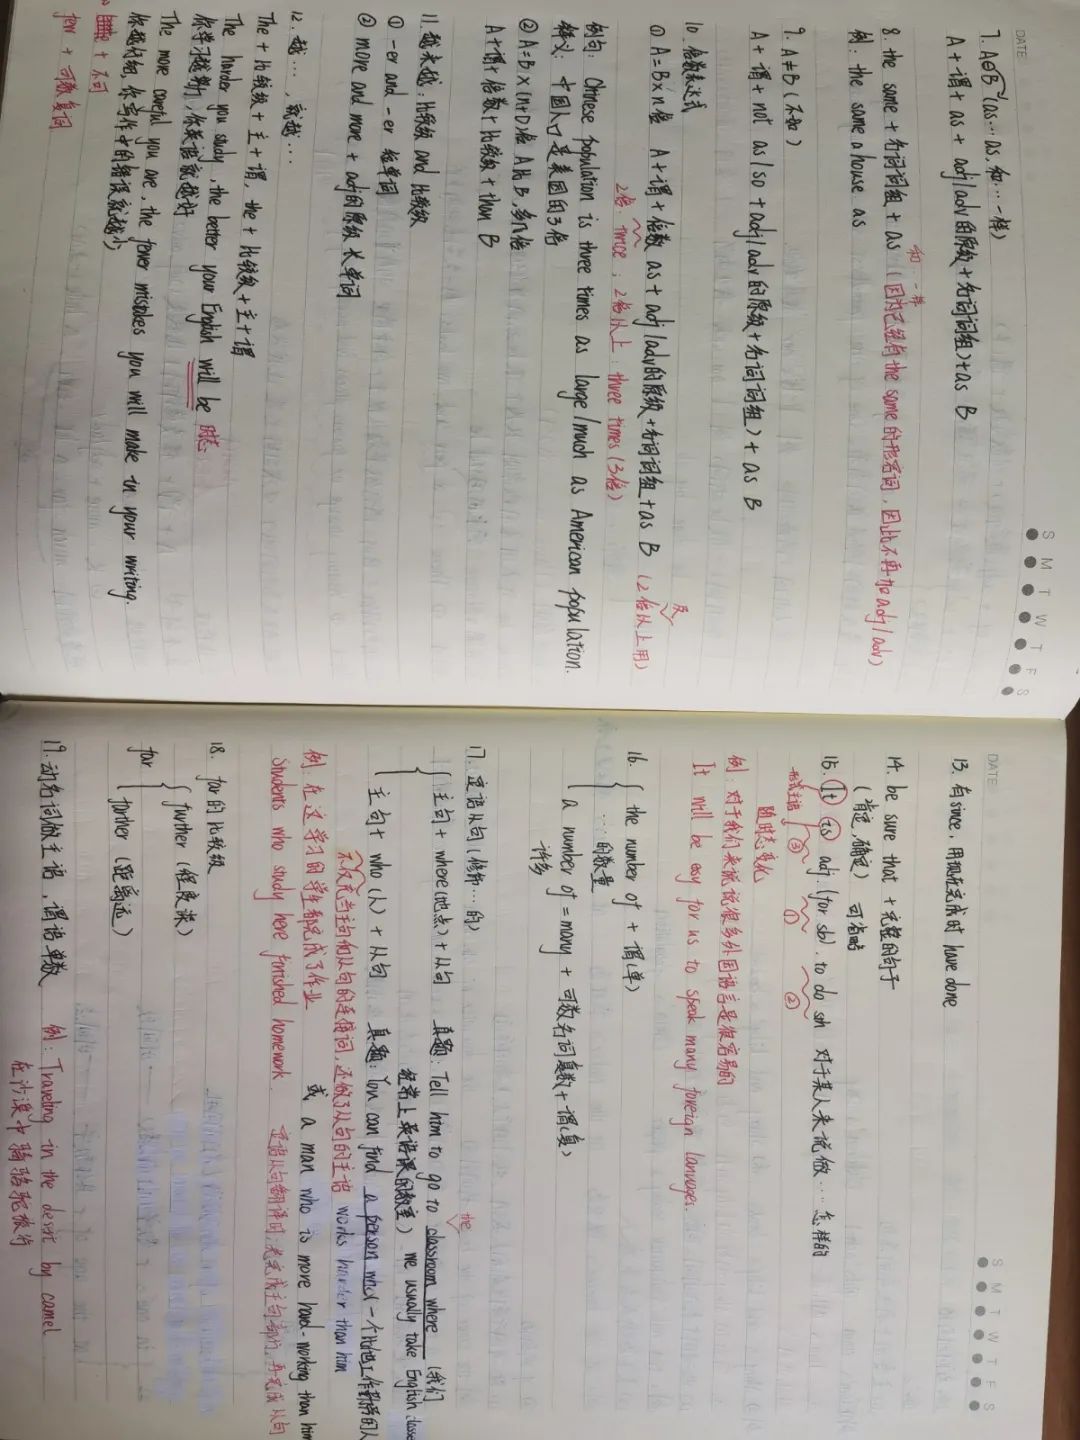 DATE
S M T W T F S
7. A=B (as…as, 和…一样)
A+谓+as+adj/adv的原级(+名词词组)+as B
和…一样
8. the same+名词词组+as (因为已经有the same的形容词，因此不再加adj/adv)
例: the same a house as
9. A≠B (不如)
A+谓+not as/so+adj/adv的原级(+名词词组)+as B
10. 倍数表达式
① A=B×n倍 A+谓+倍数 as+adj/adv的原级+名词词组+as B (2倍以上用)
2倍: twice, 2倍以上: three times (3倍)
例句: Chinese population is three times as large/much as American population.
释义: 中国人口是美国的3倍
② A=B×(n+1)倍 A比B多n倍
A+谓+倍数+比较级+than B
11. 越来越: 比较级 and 比较级
① -er and -er 短单词
② more and more+adj的原级 长单词
12. 越…，就越…
The+比较级+主+谓, the+比较级+主+谓
The harder you study, the better your English will be 时态
你学习越努力，你英语就越好
The more careful you are, the fewer mistakes you will make in your writing.
你越仔细，你写作中的错误就越少
+不可
few+可数复词
DATE
S M T W T F S
13. 有since，用现在完成时 have done
14. be sure that+完整的句子
(肯定，确定) 可省略
15. It is adj. (for sb). to do sth 对于某人来说做…怎样的
形式主语 ③ ① ②
随时态变化
例 对于我们来说说很多外国语言是很容易的
It will be easy for us to speak many foreign languages.
16. the number of+谓(单)
…的数量
a number of=many+可数名词复数+谓(复)
许多
17. 定语从句 (修饰…的)
the
主句+where(地点)+从句 真题: Tell him to go to classroom where (我们
经常上英语课的教室) we usually take English classe
主句+who(人)+从句 真题: You can find a person who 一个比他工作勤奋的人
不仅充当主句和从句的连接词，还做了从句的主语 works harder than him
例: 在这学习的学生都完成了作业 或 a man who is more hard-working than him
Students who study here finished homework. 定语从句翻译时: 先完成主句部分，再完成从句
18. far的比较级
far
further (程度深)
farther (距离远)
19. 动名词做主语，谓语单数 例: Traveling in the desert by camel
在沙漠中骑骆驼旅行